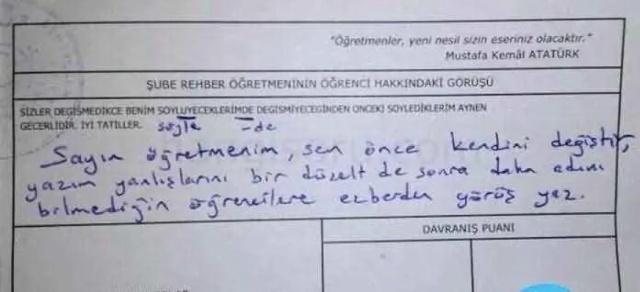 "Öğretmenler, yeni nesil sizin eseriniz olacaktır."
Mustafa Kemâl ATATÜRK
ŞUBE REHBER ÖĞRETMENİNİN ÖĞRENCİ HAKKINDAKİ GÖRÜŞÜ
SİZLER DEĞİŞMEDİKCE BENİM SÖYLÜYECEKLERİMDE DEGISMIYECEGİNDEN ONCEKİ SOYLEDİKLERİM AYNEN
GECERLİDİR. İYİ TATİLLER. söyle -de
Sayın öğretmenim, sen önce kendini değiştir,
yazım yanlışlarını bir düzelt de sonra daha adını
bilmediğin öğrencilere ezberden görüş yaz.
DAVRANIŞ PUANI